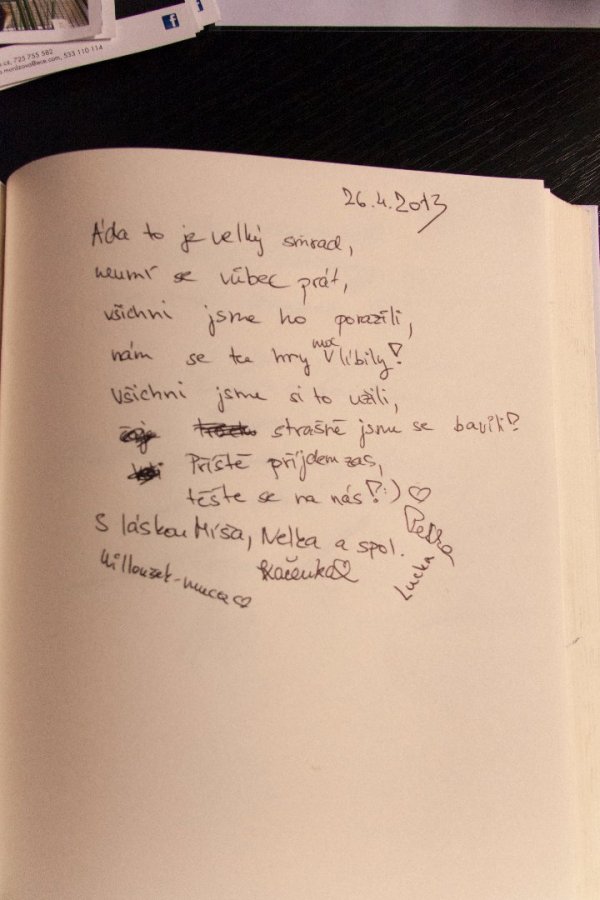 725 755 582
533 110 114
f
26.4.2013
Áďa to je velký smrad,
neumí se vůbec prát,
všichni jsme ho porazili,
nám se tu hry moc líbily!
všichni jsme si to užili,
strašně jsme se bavili!
Příště příjdem zas,
těšte se na nás! :) ♡
S láskou Míša, Nelča a spol.
Kačenka♡
Lucka